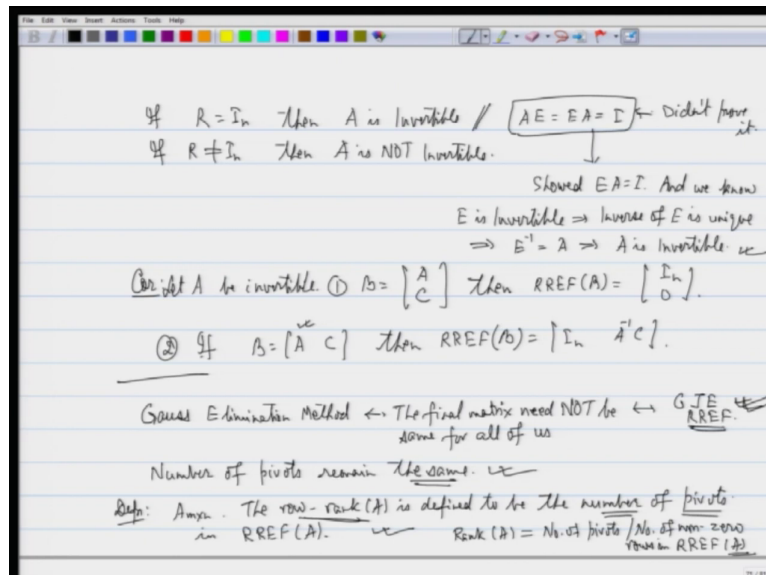 File Edit View Insert Actions Tools Help
B I
If R = In then A is Invertible // AE = EA = I ← Didn't prove it.
If R ≠ In then A is NOT Invertible.
Showed EA = I. And we know
E is Invertible ⇒ Inverse of E is unique
⇒ E⁻¹ = A ⇒ A is Invertible.
Cor: Let A be invertible. ① B = [A C] then RREF(B) = [In 0].
② If B = [A C] then RREF(B) = [In A⁻¹C].
Gauss Elimination Method ← The final matrix need NOT be ↔ GJE
same for all of us RREF.
Number of pivots remain the same.
Defn: Amxn. The row-rank(A) is defined to be the number of pivots
in RREF(A). Rank(A) = No. of pivots / No. of non-zero
rows in RREF(A)